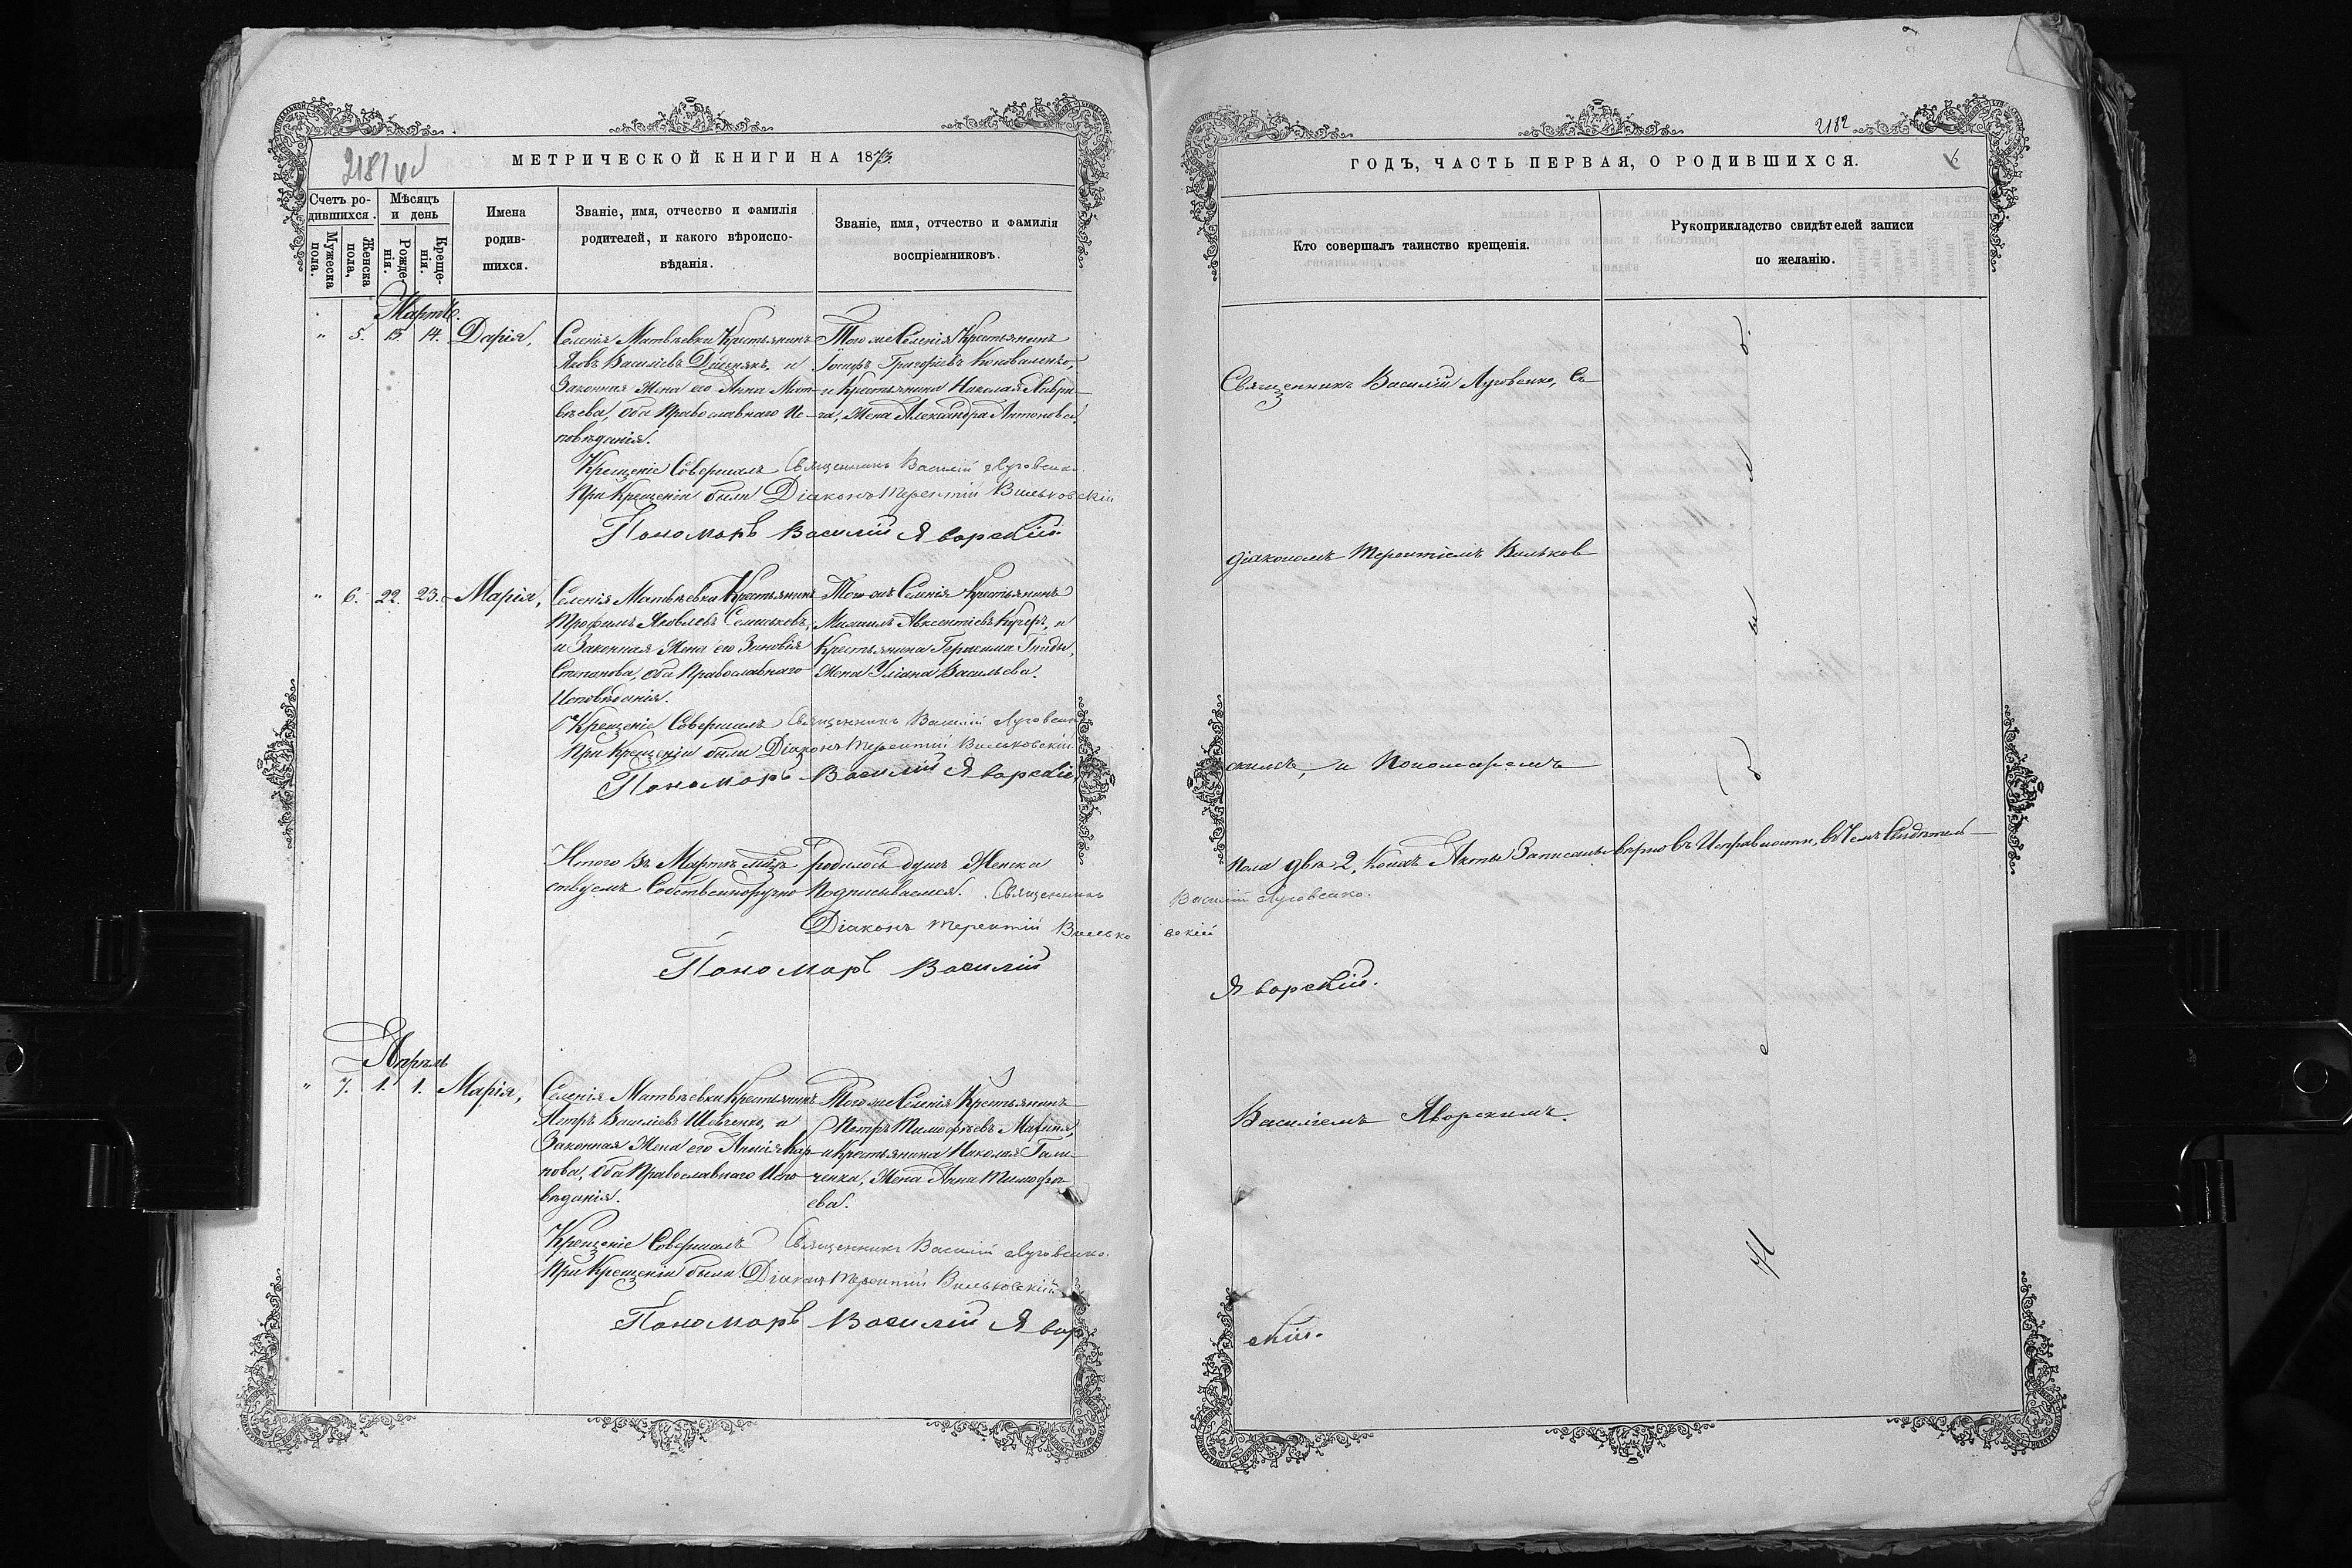 2181 об
МЕТРИЧЕСКОЙ КНИГИ НА 1873
Счетъ родившихся.
Мѣсяцъ и день
Имена родившихся.
Званіе, имя, отчество и фамилія родителей, и какого вѣроисповѣданія.
Званіе, имя, отчество и фамилія воспріемниковъ.
Мужеска пола.
Женска пола.
Рожденія.
Крещенія.
Мартъ.
" 5. 13. 14. Дарія,
Селенія Матвѣевки Крестьянинъ
Яковъ Василіевъ
Законная Жена его Анна Мат-
вѣева, оба Православнаго Ис-
повѣданія.
Того же Селенія Крестьянинъ
Іосифъ Григоріевъ Коноваленко,
и Крестьянина Николая
Жена Александра Антонова.
Крещеніе Совершалъ Священникъ Василій Луговенко.
При Крещеніи были Діаконъ Терентій Вильковскій
Пономарь Василій Яворскій.
" 6. 22. 23. Марія,
Селенія Матвѣевки Крестьянинъ
Трофимъ Яковлевъ
и Законная Жена его Зиновія
Степанова, оба Православнаго
Исповѣданія.
Того же Селенія Крестьянинъ
Михаилъ Авксентіевъ Кучеръ, и
Крестьянина Герасима
Жена Уліана Васильева.
Крещеніе Совершалъ Священникъ Василій Луговенко
При Крещеніи были Діаконъ Терентій Вильковскій.
Пономарь Василій Яворскій.
Итого въ Мартѣ мѣсѣ родилось душъ Женска
ствуемъ Собственноручно Подписываемся. Священникъ
Діаконъ Терентій Вилько
Пономарь Василій
Апрѣль
" 7. 1. 1. Марія,
Селенія Матвѣевки Крестьянинъ
Петръ Василіевъ Шевченко, и
Законная Жена его Аннія Кар-
пова, оба Православнаго Испо-
вѣданія.
Того же Селенія Крестьянинъ
Петръ Тимофѣевъ
и Крестьянина Николая Гали-
ченка, Жена Анна Тимофѣ
ева.
Крещеніе Совершалъ Священникъ Василій Луговенко.
При Крещеніи были Діаконъ Терентій Вильковскій
Пономарь Василій Явор
2182
ГОДЪ, ЧАСТЬ ПЕРВАЯ, О РОДИВШИХСЯ.
6
Кто совершалъ таинство крещенія.
Рукоприкладство свидѣтелей записи по желанію.
Священникъ Василій Луговенко, Съ
діакономъ Терентіемъ Вильков
скимъ, и Пономаремъ
Пола двѣ 2, Коихъ Акты Записаны вѣрно въ Исправности, въ Чемъ Свидѣтель-
Василій Луговенко.
вскій
Яворскій.
Василіемъ Яворскимъ.
скій.